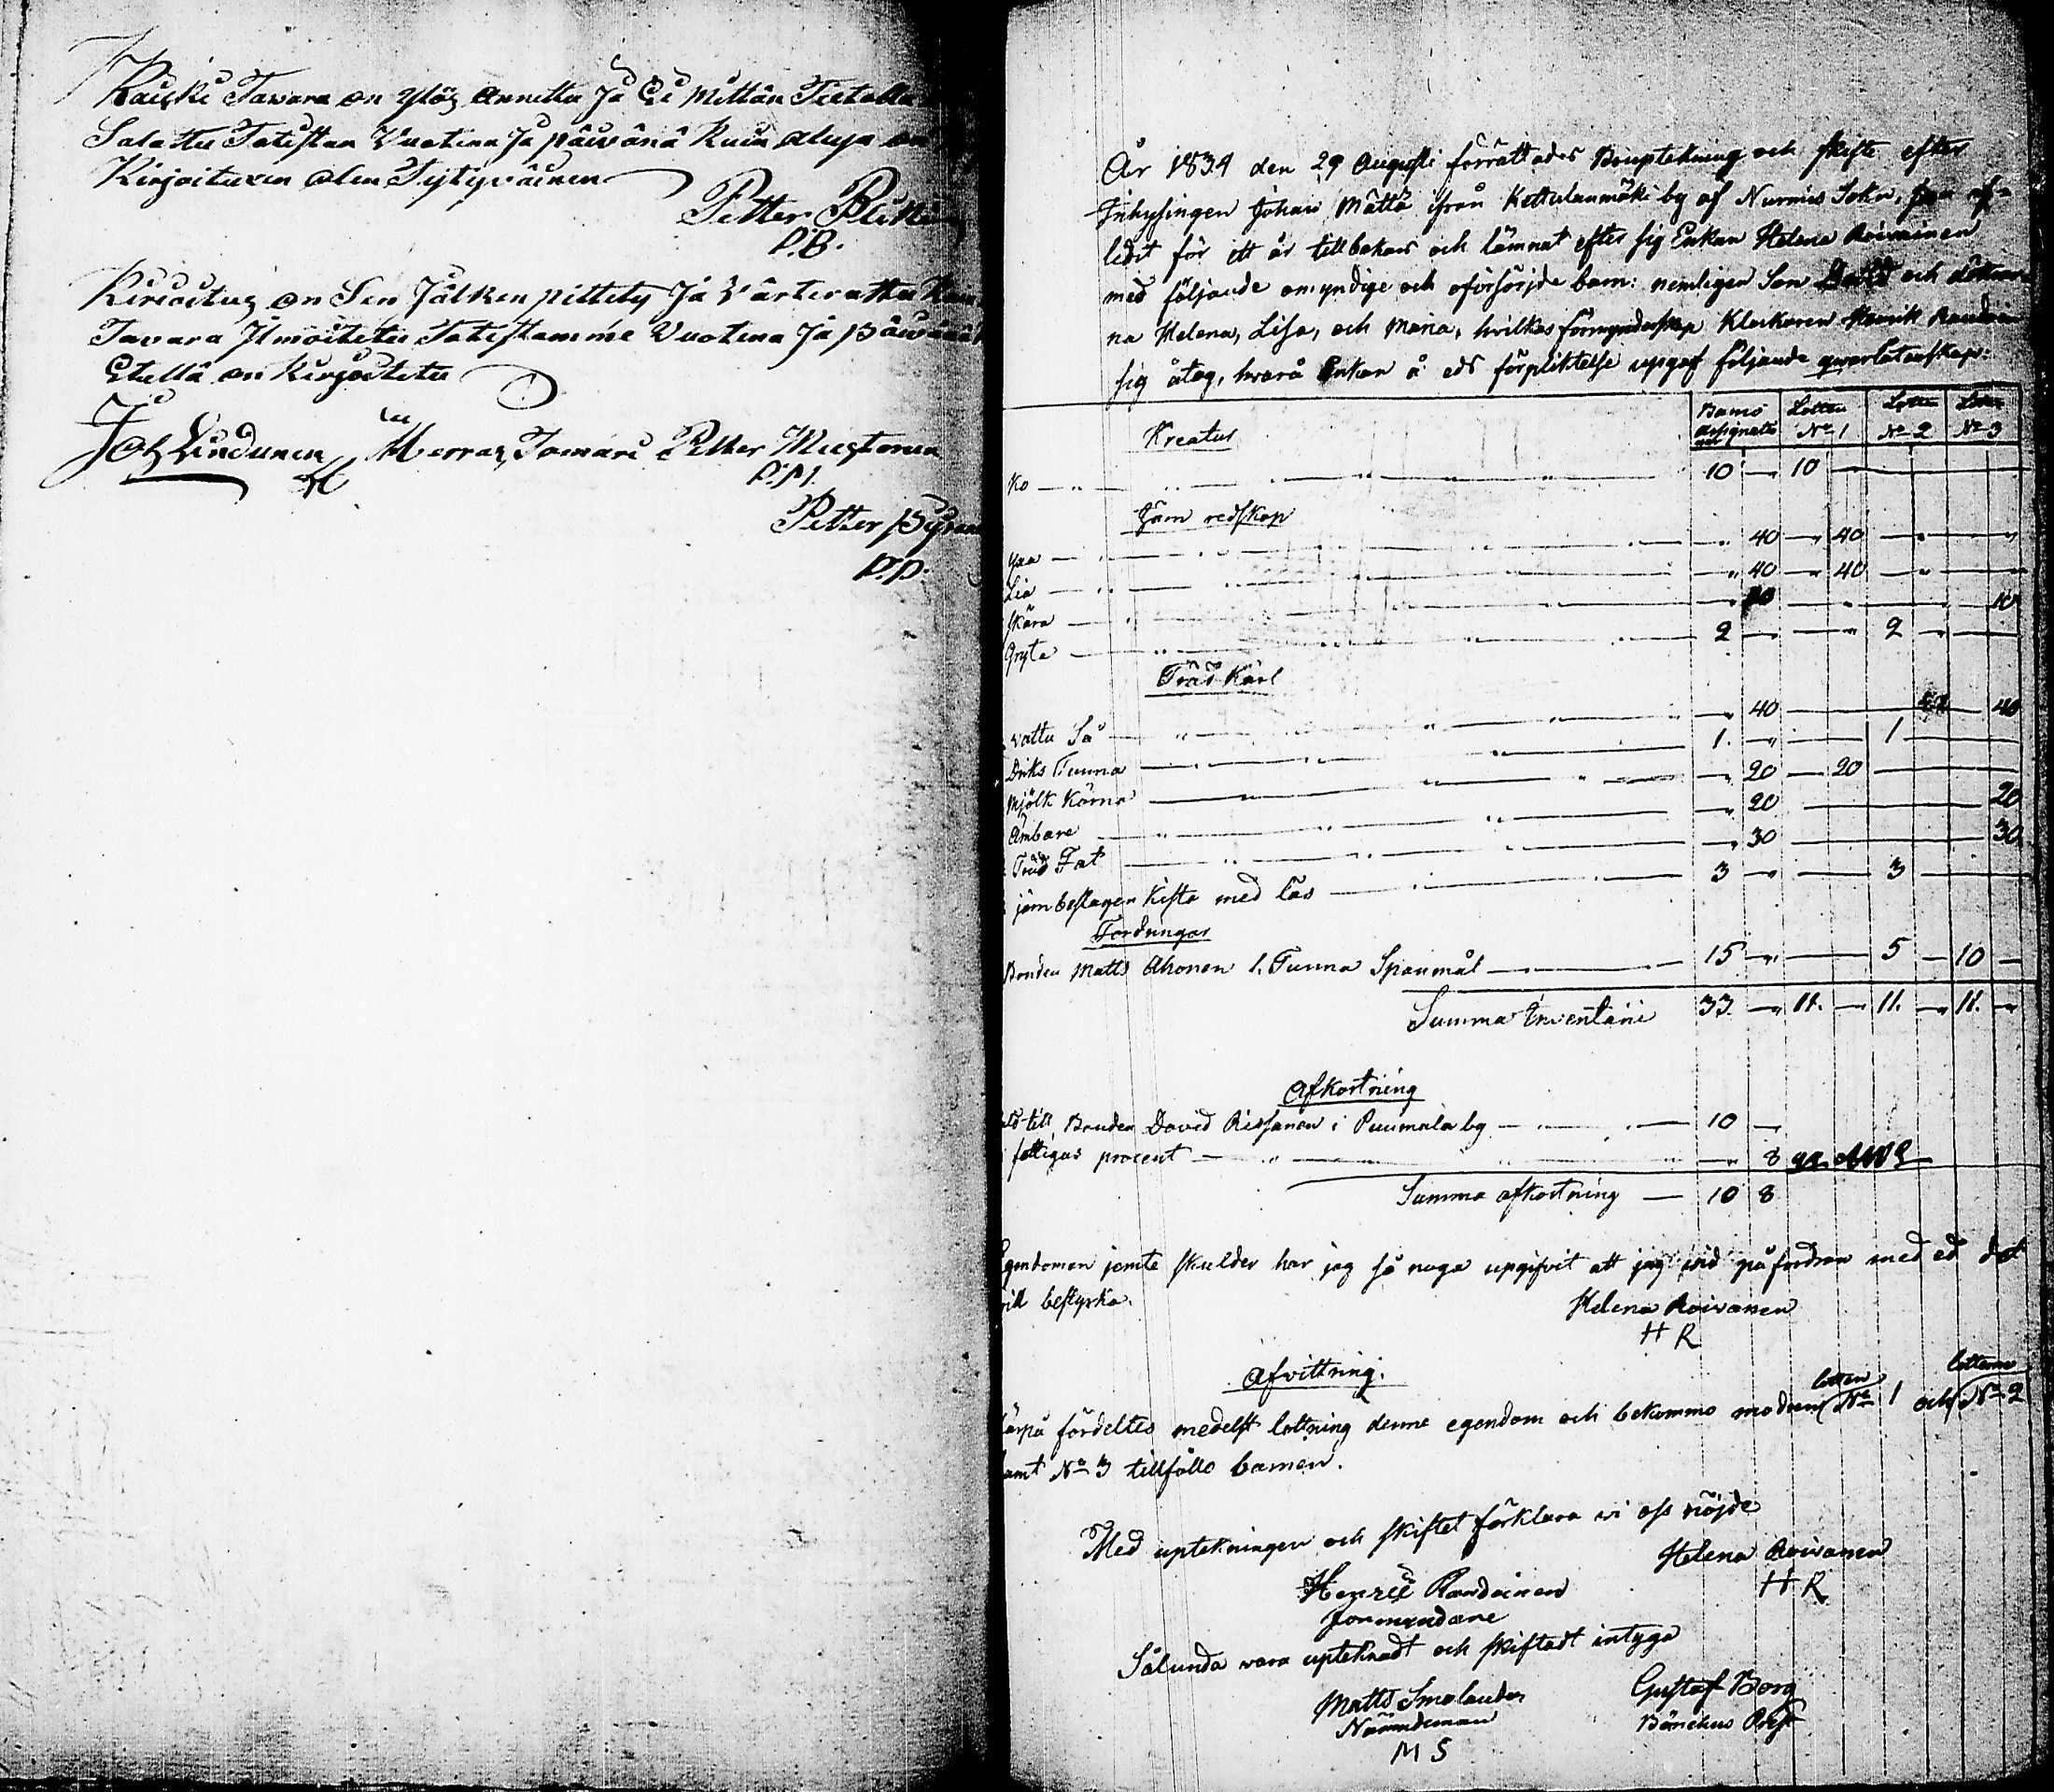 Kaicki Tawara on ylöz Annittu Ja Ei Mittän Tietalla
Salattu Totistan Vuotena Ja päiwänä Kuin aluja on
Kirjoituxen olen Tytyväinen
Petter
P.B.
Kirioituz on Sen Jälken pittety Ja Värteratta Kuin
Tavara Ilmoitettu Totistamme Vuotena Ja päiwänä
Etullä on Kirjoitettu
Joh Lindunen Merraz Tomari Petter Mustonen
P.M.
Petter
P.P.
År 1834 den 29 Augusti förrättades Bouptekning och skifte efter
Inhysingen Johan Mättö ifrån Kettulanmäki by af Nurmis Sokn, som af-
ledit för ett år tillbakars och lämnat efter sig Enkan Helena Roivainen
med följande omyndige och oförsörjde barn: nemligen Son David och döttrar
na Helena, Lisa, och Maria, hvilkas förmynderskap Klockaren Henrik
sig åtog, hvarå Enkan å eds förpliktelse upgaf följande qvarlåtenskap:
Kreatur
Banco assignats Lotten No 1 Lotten No 2 Lotten No 3
Ko 10 10
Järn redskap
Yxa 40 40
Lia 40 40
skära 10 10
Gryta 2 2
Träd Kärl
vattu Så 40 40
Driks Tunna 1. 1
Mjölk Kärna 20 20
Ämbare 20 20
Träd Fat 30 30
järn beslagen Kista med lås 3 3
Fordringar
Bonden Matts Ahonen 1. Tunna Spanmål 15 5 10
Summa Inventarii 33 11. 11. 11.
Afkortning
till Bonden David Rissanen i Puumala by 10
fattigas procent 8
Summa afkortning 10 8
Egendomen jemte skulder har jag så noga upgifvit att jag vid påfordran med ed det
vill bestyrka.
Helena Roivanen
H R
Afvittring.
Härpå fördeltes medelst lottning denne egendom och bekommo modren lotten No 1 och lotterne No 2
samt No 3 tillföllo barnen.
Med uptekningen och skiftet förklara vi oss nöjde
Helena Roivanen
H R
Henric Randainen
Formyndare
Sålunda vara upteknadt och skiftadt intyga
Matts Smolander
Nämndeman
M S
Gustaf Borg